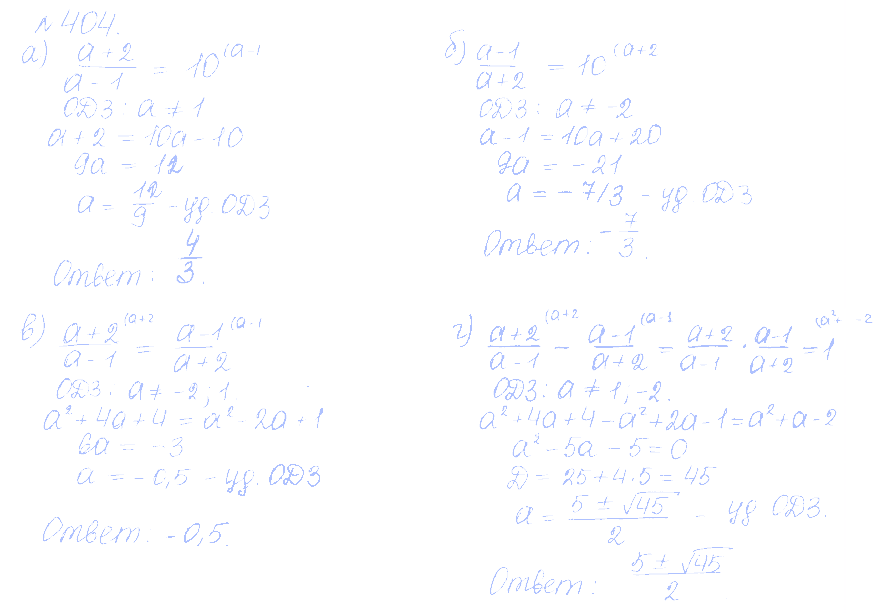 № 404.
а) (a+2)/(a-1) = 10 (a-1
ОДЗ: a ≠ 1
a+2 = 10a-10
9a = 12
a = 12/9 - уд ОДЗ
Ответ: 4/3.
б) (a-1)/(a+2) = 10 (a+2
ОДЗ: a ≠ -2
a-1 = 10a+20
9a = -21
a = -7/3 - уд ОДЗ
Ответ: -7/3.
в) (a+2)/(a-1) (a+2 = (a-1)/(a+2) (a-1
ОДЗ: a ≠ -2; 1
a²+4a+4 = a²-2a+1
6a = -3
a = -0,5 - уд. ОДЗ
Ответ. -0,5.
г) (a+2)/(a-1) (a+2 - (a-1)/(a+2) (a-1 = (a+2)/(a-1) · (a-1)/(a+2) = 1 (a²+ -2
ОДЗ: a ≠ 1, -2.
a²+4a+4-a²+2a-1=a²+a-2
a²-5a-5=0
D = 25+4·5=45
a = (5±√45)/2 - уд ОДЗ.
Ответ: (5±√45)/2